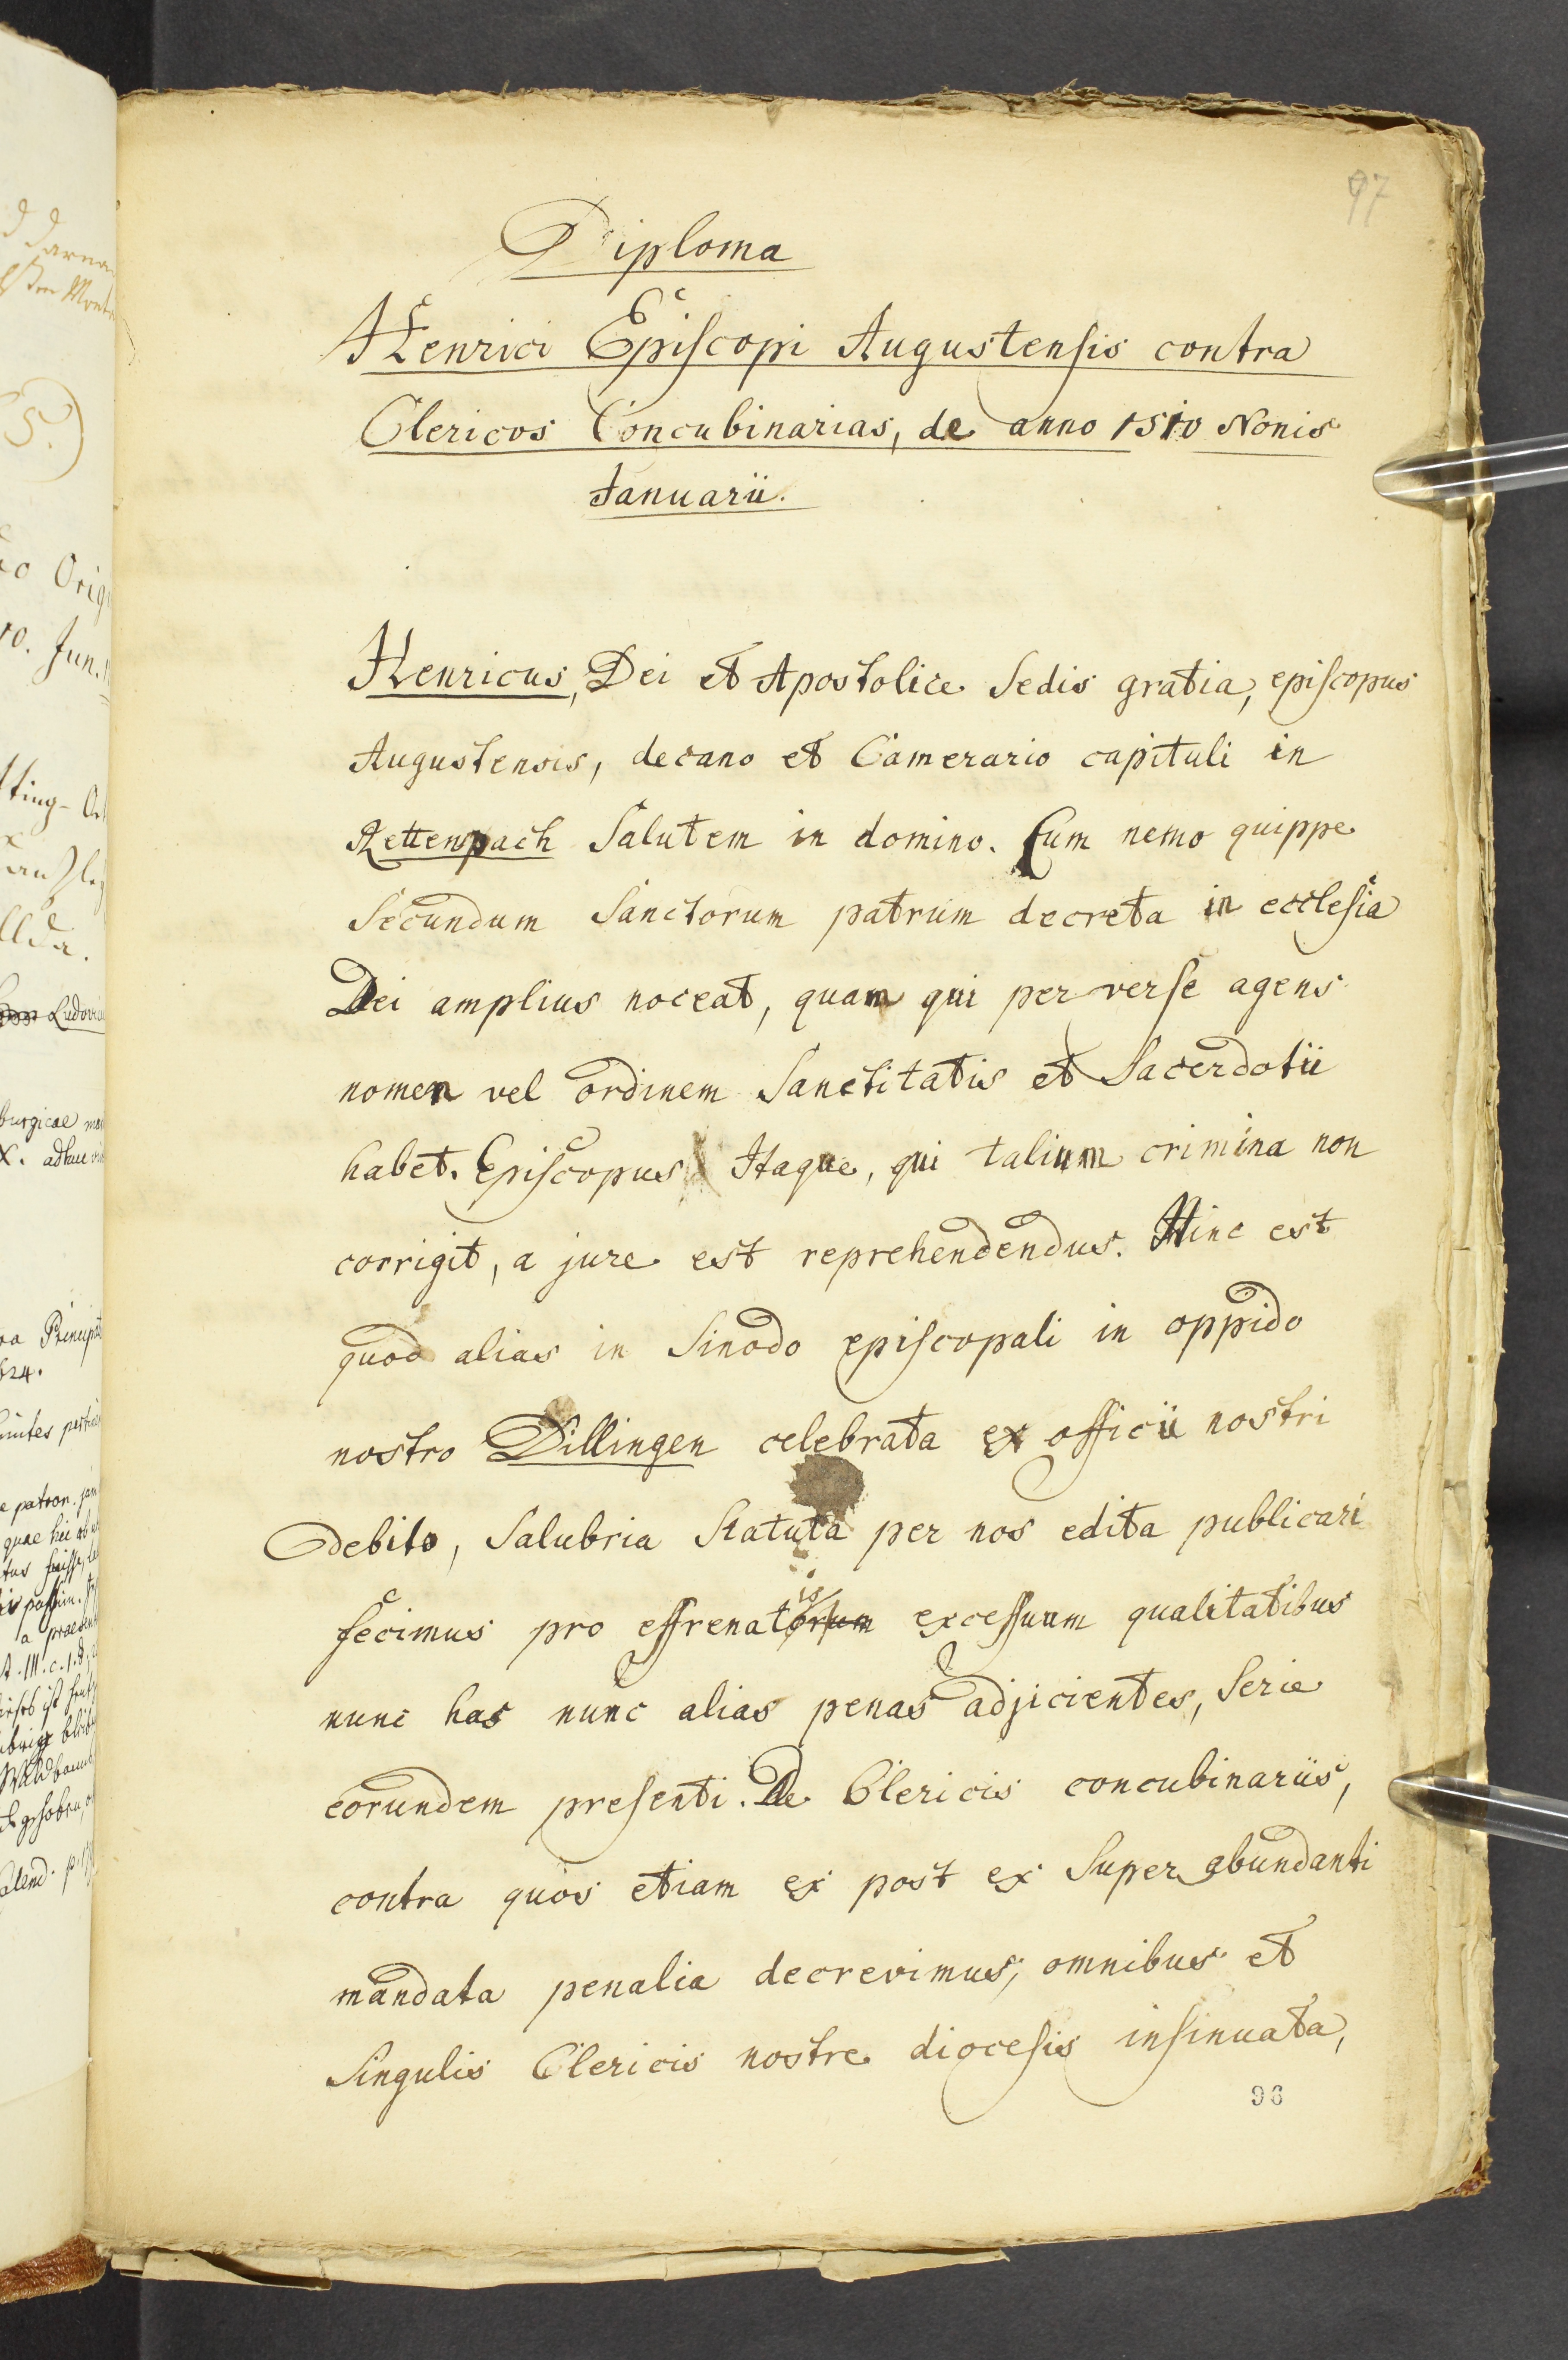 97
Diploma
Henrici Episcopi Augustensis contra
Clericos Concubinarias, de anno 1510 Nonis
Januarii.
Henricus, Dei et Apostolice Sedis gratia, episcopus
Augustensis, decano et Camerario capituli in
Rettenpach Salutem in domino. Cum nemo quippe
Secundum Sanctorum patrum decreta in ecclesia
Dei amplius noceat, quam qui perverse agens
nomen vel ordinem Sanctitatis et Sacerdotii
habet. Episcopus Itaque, qui talium crimina non
corrigit, a jure est reprehendendus. Hinc est
quod alias in Sinodo episcopali in oppido
nostro Dillingen celebrata ex officii nostri
debito, Salubria Statuta per nos edita publicari
fecimus pro effrenatorum is excessuum qualitatibus
nunc has nunc alias penas adjicientes, Serie
eorundem presenti. De Clericis concubinariis,
contra quos etiam ex post ex Superabundanti
mandata penalia decrevimus, omnibus et
Singulis Clericis nostre diocesis insinuata,
96